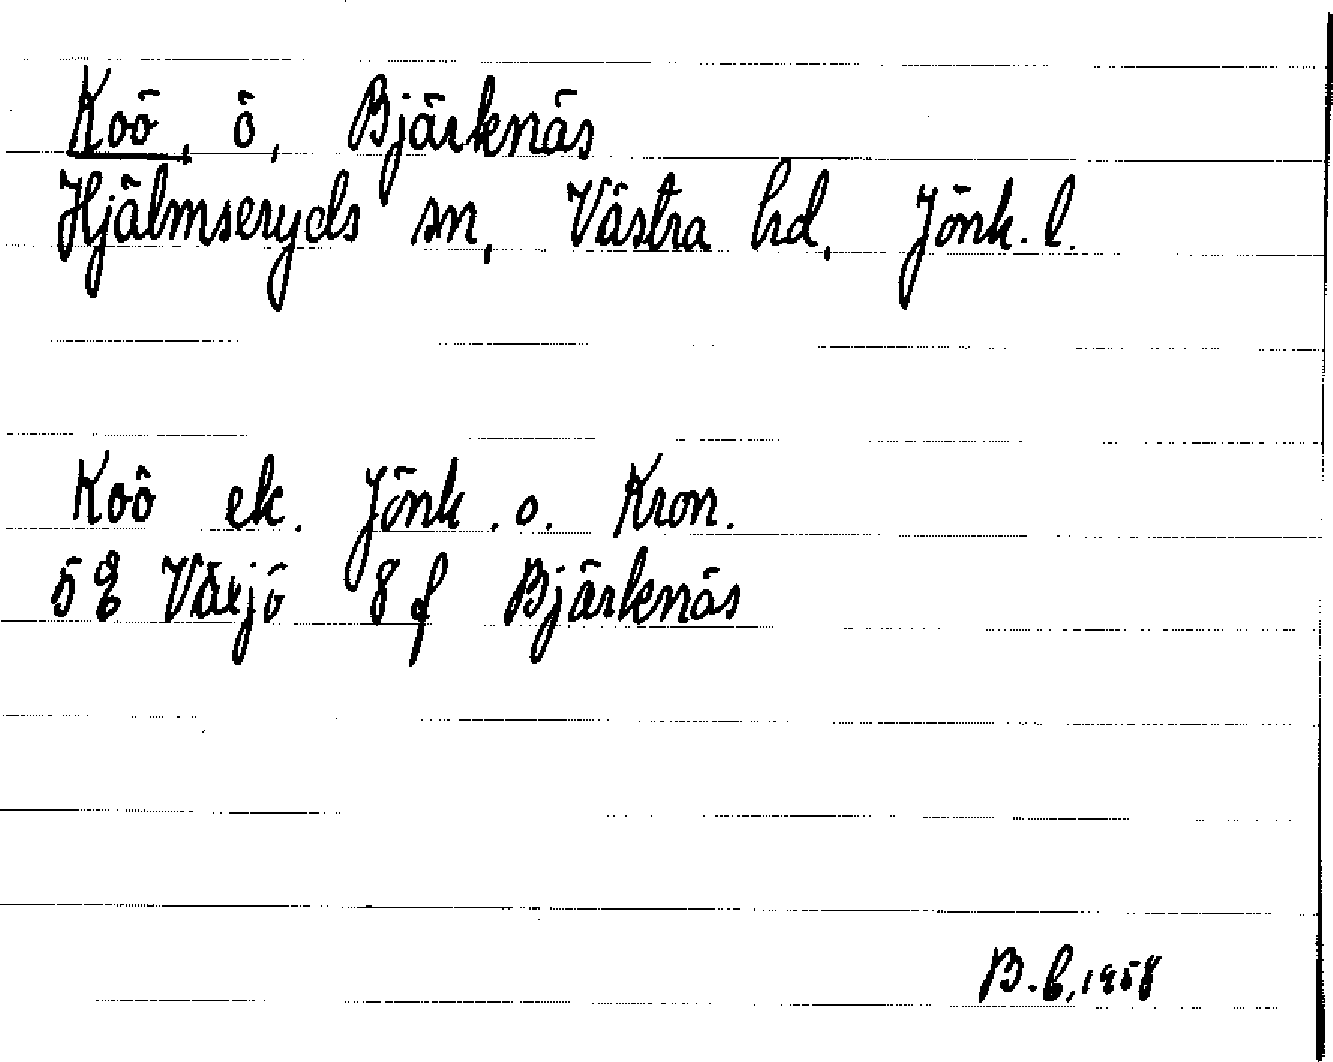 Koö, ö, Bjärknäs
Hjälmseryds sn, Västra hd, Jönk. l.
Koö ek. Jönk. o. Kron.
5 E Växjö 8 f Bjärknäs
B. b, 1958